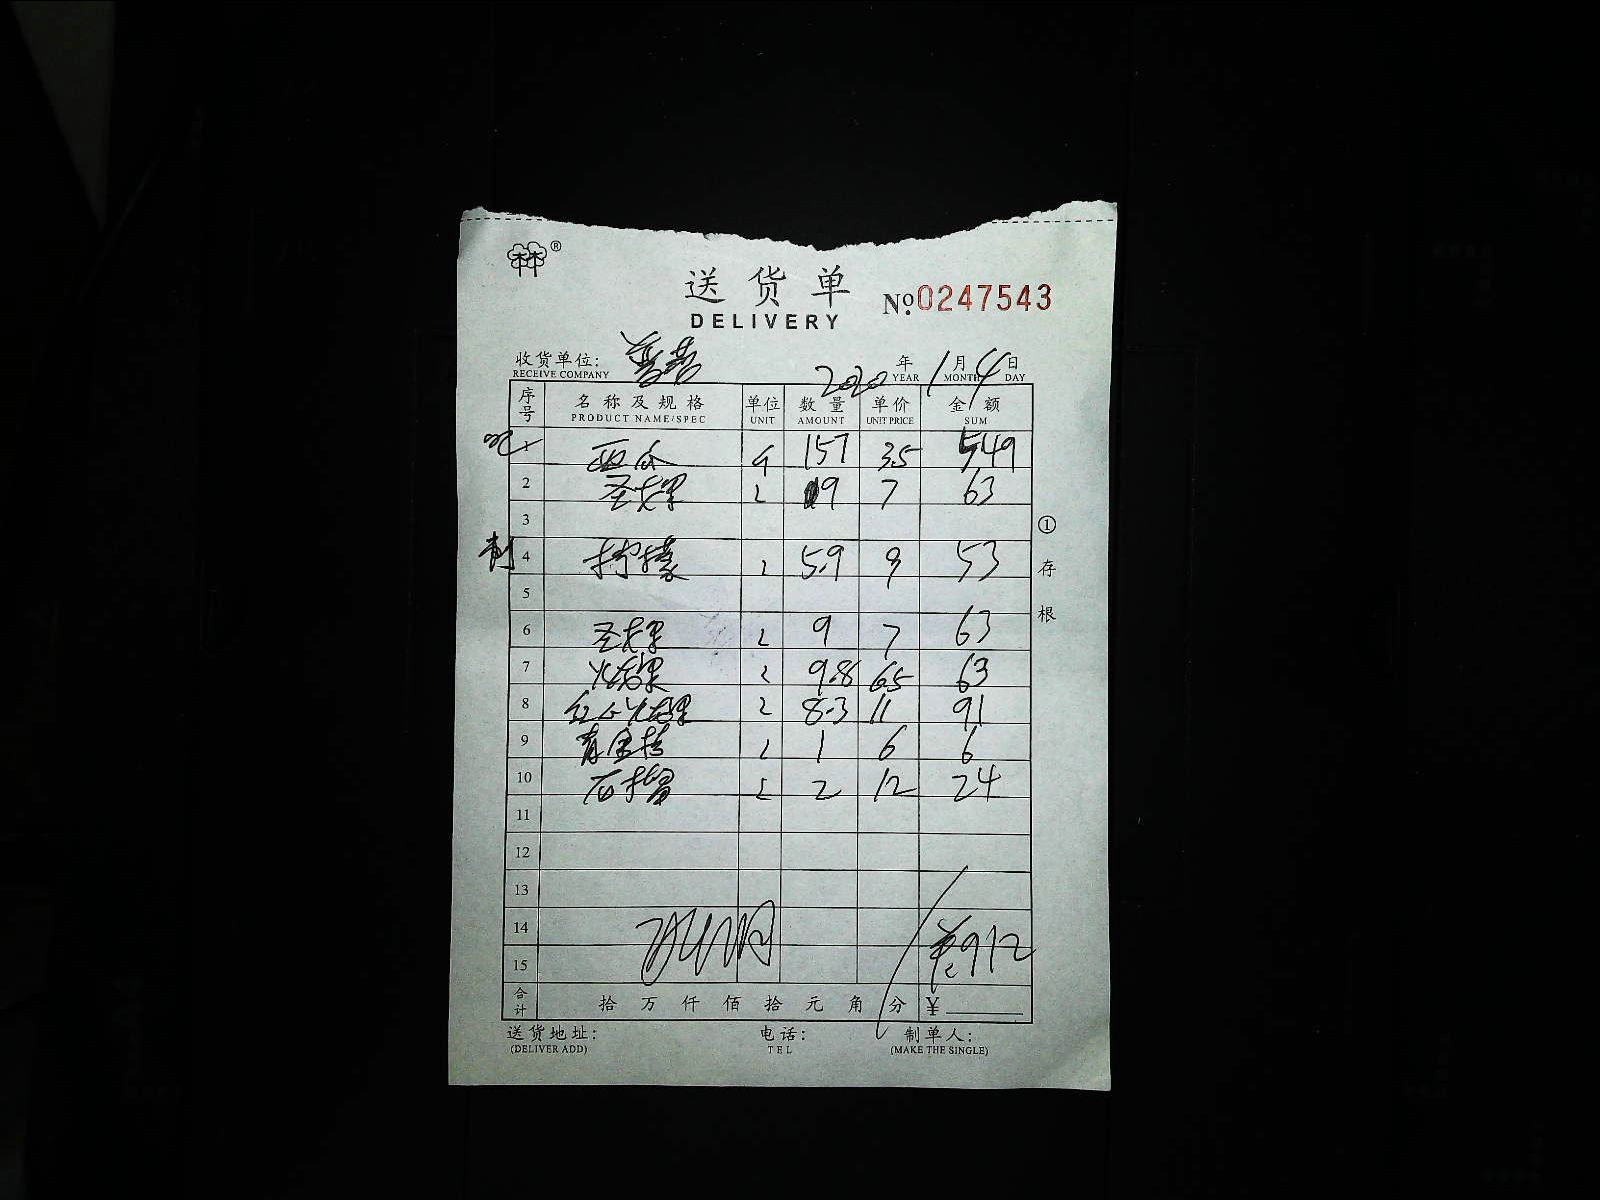 林®
送货单 №0247543
DELIVERY
收货单位: 2020 年 1 月 4 日
RECEIVE COMPANY YEAR MONTH DAY
序号 名称及规格 单位 数量 单价 金额
PRODUCT NAME/SPEC UNIT AMOUNT UNIT PRICE SUM
1 西瓜 157 3.5 549
2 圣女果 9 7 63
3
4 柠檬 5.9 9 53
5
6 圣女果 9 7 63
7 火龙果 9.8 65 63
8 红心火龙果 8.3 11 91
9 青金桔 1 6 6
10 石榴 2 12 24
11
12
13
14
15 912
合计 拾 万 仟 佰 拾 元 角 分 ¥
送货地址: 电话: 制单人:
(DELIVER ADD) TEL (MAKE THE SINGLE)
①存根